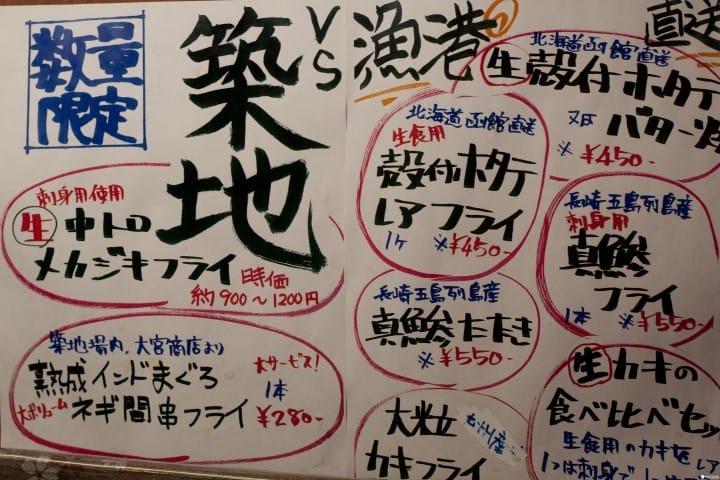 数量
限定
築地
VS
漁港
直送
刺身用使用
生 中トロ
メカジキフライ
時価
約900〜1200円
築地場内、大宮商店より
熟成インドまぐろ
大ボリューム ネギ間串フライ
大サービス!
1本
¥280-
北海道函館直送
生食用
殻付ホタテ
レアフライ
1ヶ ※¥450-
長崎五島列島産
真鯵たたき
※¥550-
大粒
カキフライ
九州産
北海道函館直送
生殻付ホタテ
又は バター焼
※¥450-
長崎五島列島産
刺身用
真鯵
フライ
1本 ※¥550-
生カキの
食べ比べセッ
生食用のカキを レア
1つは刺身で